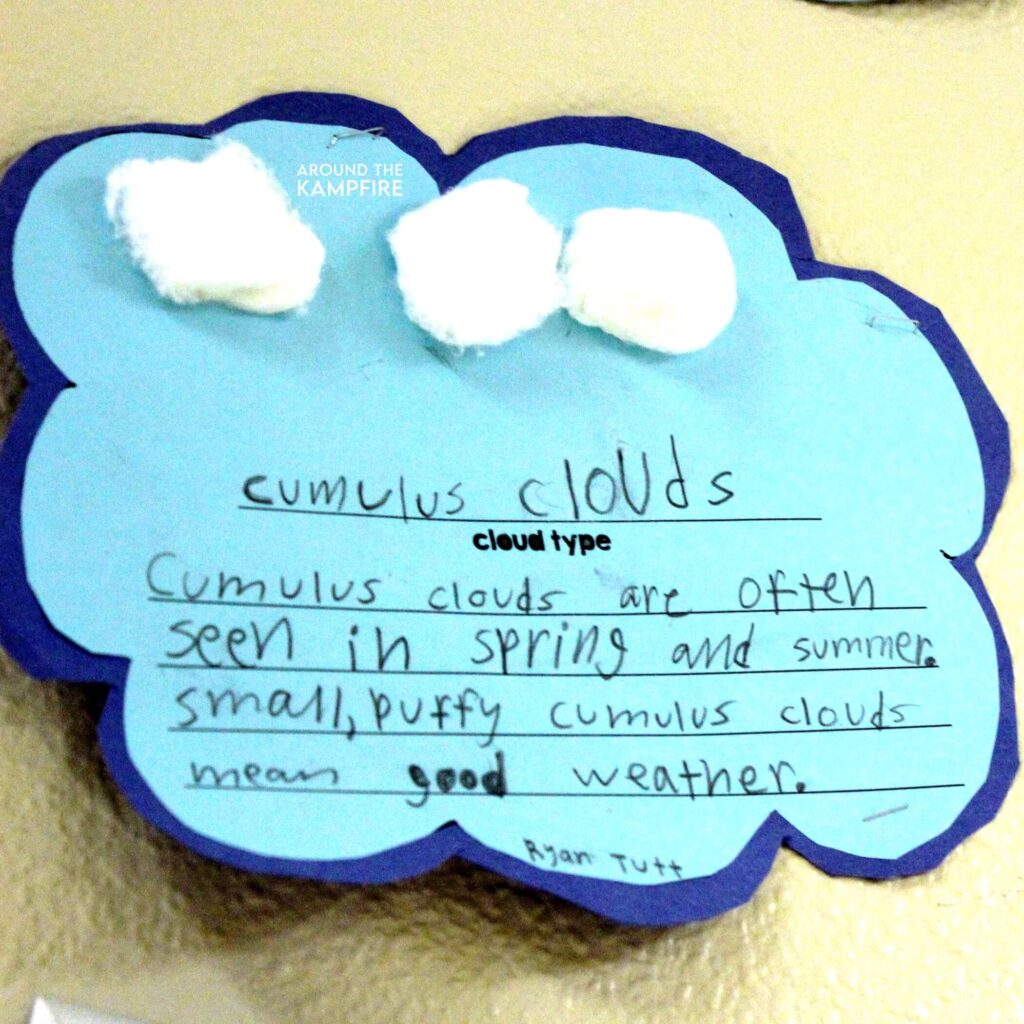 AROUND THE
KAMPFIRE
cumulus clouds
cloud type
Cumulus clouds are often
seen in spring and summer.
small, puffy cumulus clouds
mean good weather.
Ryan Tutt